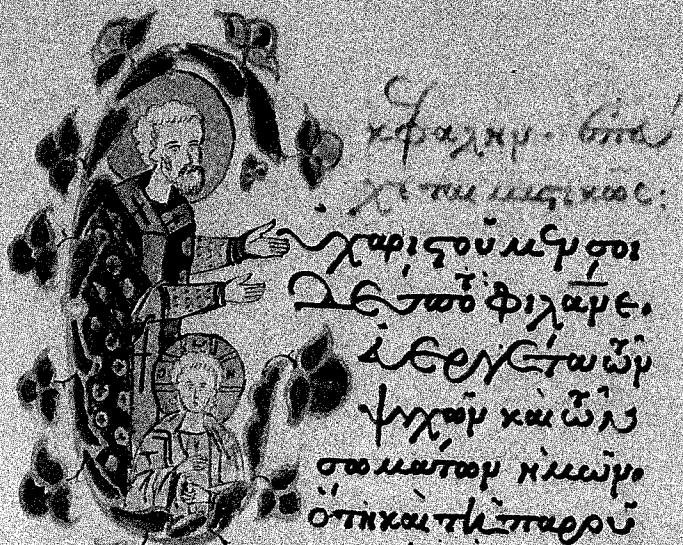 κεφαλην. ἐπεύ
χεται μυστικῶς:
Εὐχαριστοῦμέν σοι
Δέσποτα φιλάνε.
ἐυεργέτα τῶν
ψυχῶν καὶ τῶν
σωμάτων ἡμῶν.
ὅτι καὶ τῆ παρού